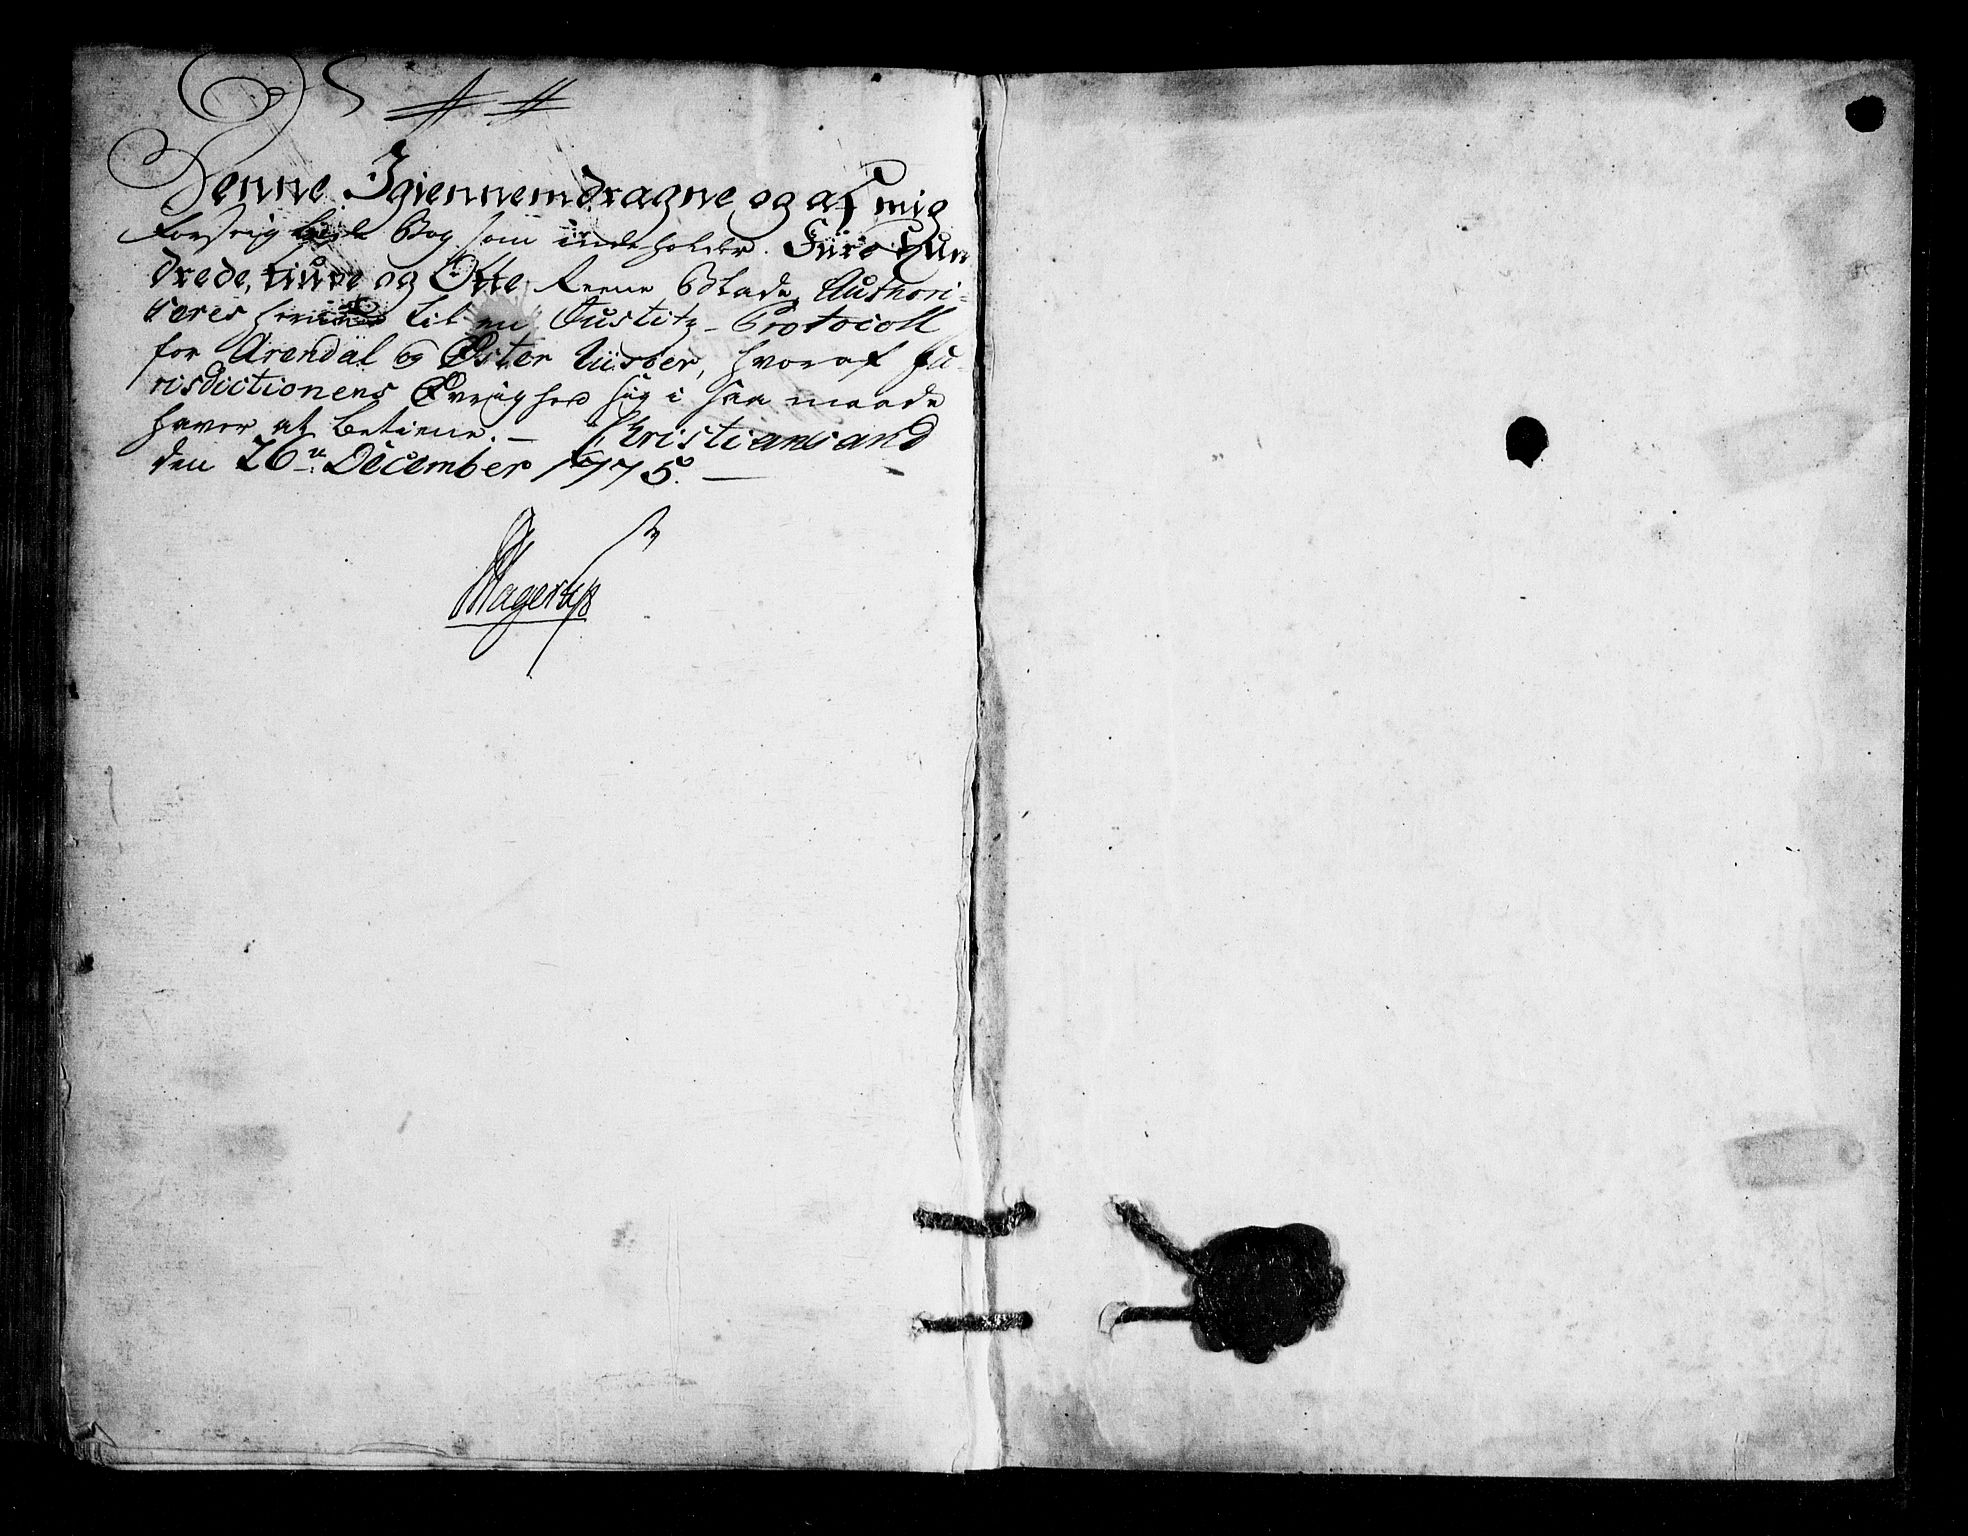 Denne Igiennemdragne og af mig
Forseiglede Bog som indeholder Fiire Hun
drede, tiuve og Otte Reene Blade, Authori-
seres herved til en Justitz-Protocoll
for Arendal og Øster Riisøer, hvoraf Ju-
risdictionens Øvrighed sig i saa maade
haver at betiene. — Christiansand
den 26de December 1775. —
Hagerup